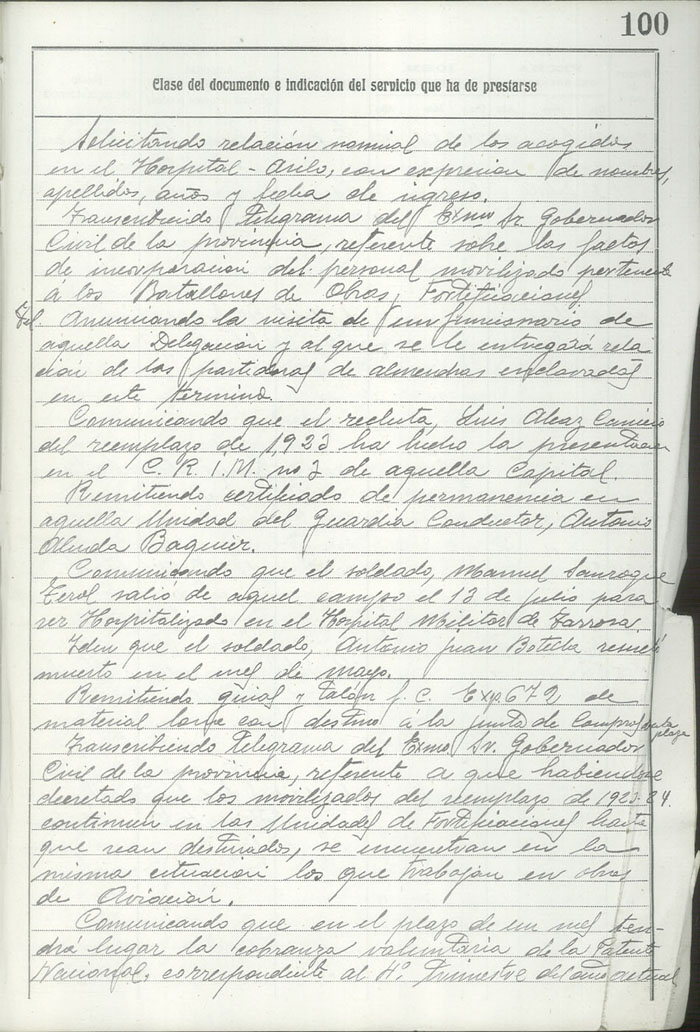 100
Clase del documento e indicación del servicio que ha de prestarse
Solicitando relación nominal de los acogidos
en el Hospital-Asilo, con expresion de nombres,
apellidos, años y fecha de ingreso.
Transcribiendo Telegrama del Exmo Sr. Gobernador
Civil de la provincia, referente sobre las
de incorporación del personal movilizado perteneciente
á los Batallones de Obras, Fortificaciones
Anunciando la visita de un de
aquella Delegación y al que se le entregará rela
ción de las de almendras enclavadas
en este termino.
Comunicando que el recluta, Luis
del reemplazo de 1,923 ha hecho la presentación
en el C. R. I. M. nº 2 de aquella Capital.
Remitiendo certificado de permanencia en
aquella Unidad del Guardia Conductor, Antonio
Baquier.
Comunicando que el soldado, Manuel Sanroque
Terol salió de aquel campo el 12 de julio para
ser Hospitalizado en el Hospital Militar de Tarrasa.
Iden que el soldado, Antonio Juan Botella resultó
muerto en el mes de mayo.
Remitiendo guias y talón f. C. Exp. 672 de
material con destino á la Junta de Compras
plaza
Transcribiendo Telegrama del Exmo Sr. Gobernador
Civil de la provincia, referente a que habiendose
decretado que los movilizados del reemplazo de 1923-24.
continuen en las Unidades de Fortificaciones hasta
que sean destinados, se encuentran en la
misma situación los que trabajan en obras
de Aviación.
Comunicando que en el plazo de un mes ten-
drá lugar la cobranza voluntaria de la Patente
Nacional, correspondiente al 4º trimestre del año actual